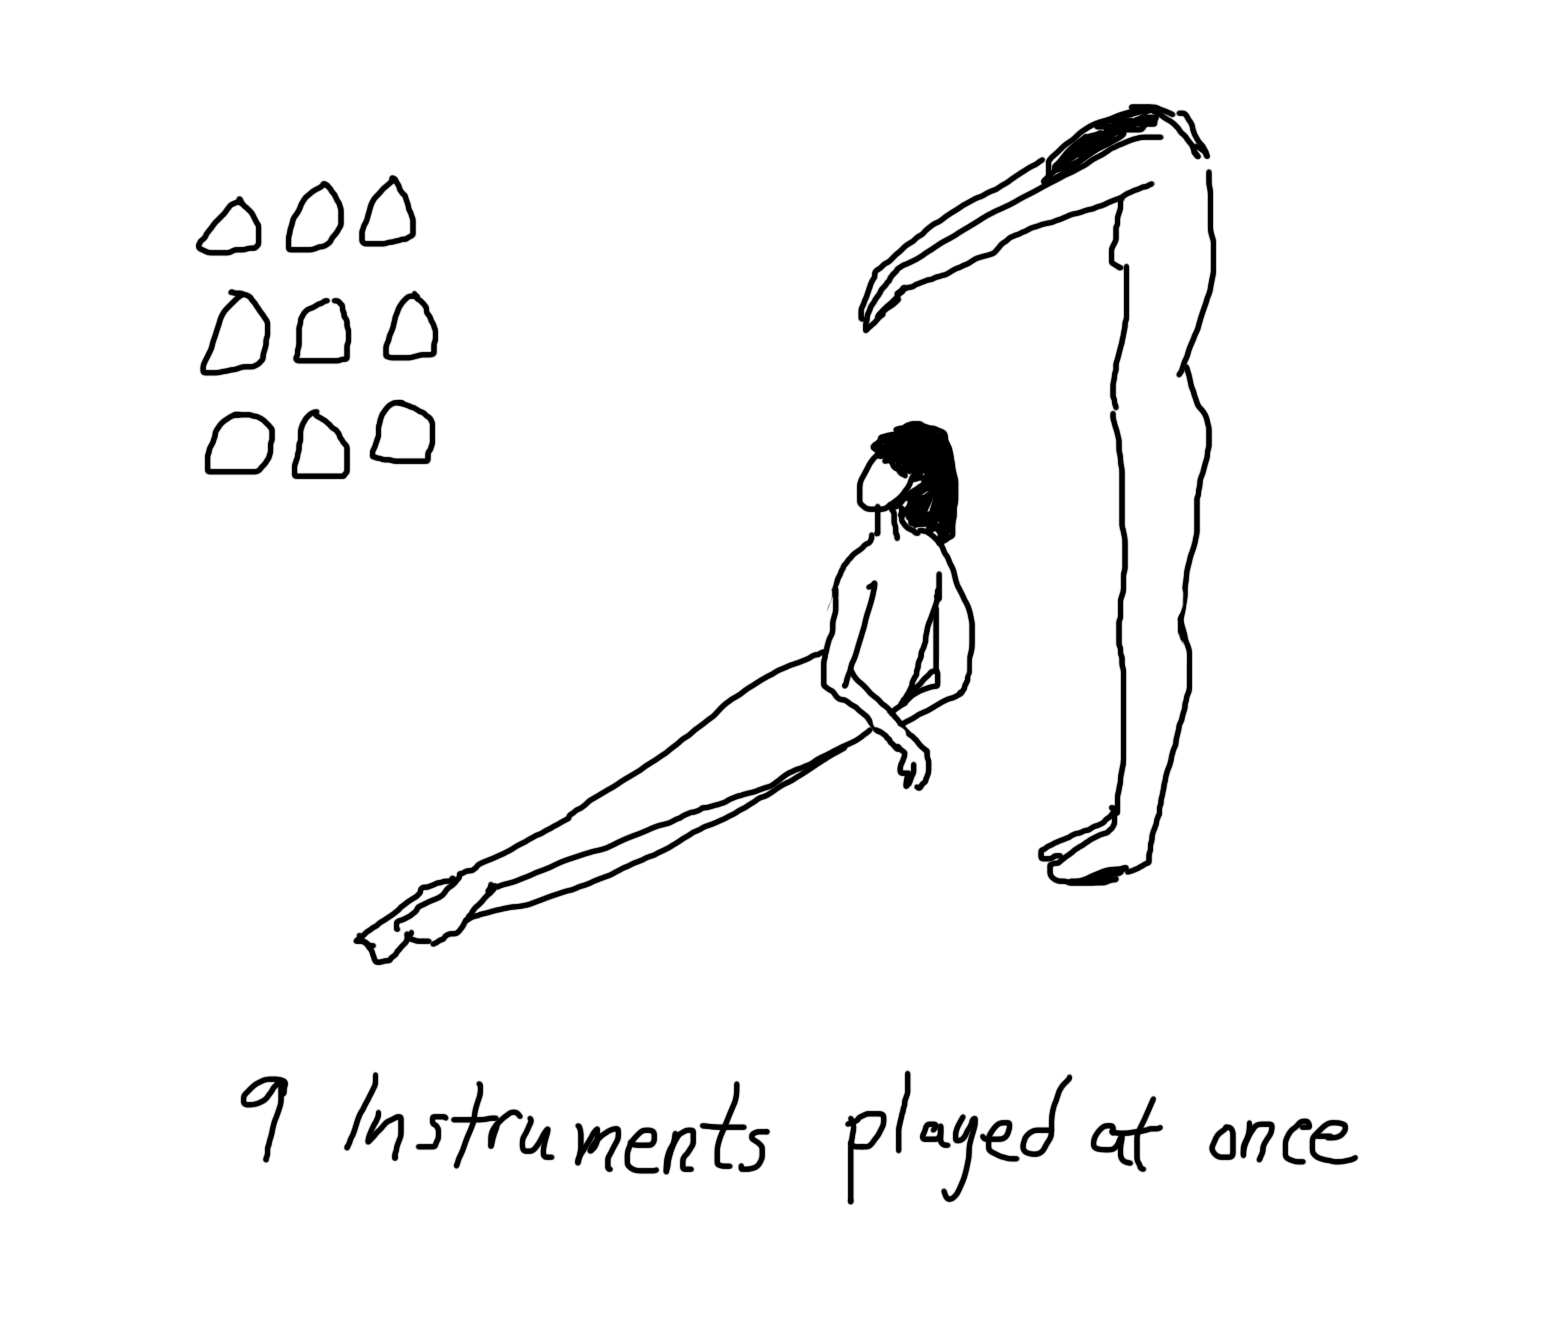 9 Instruments played at once